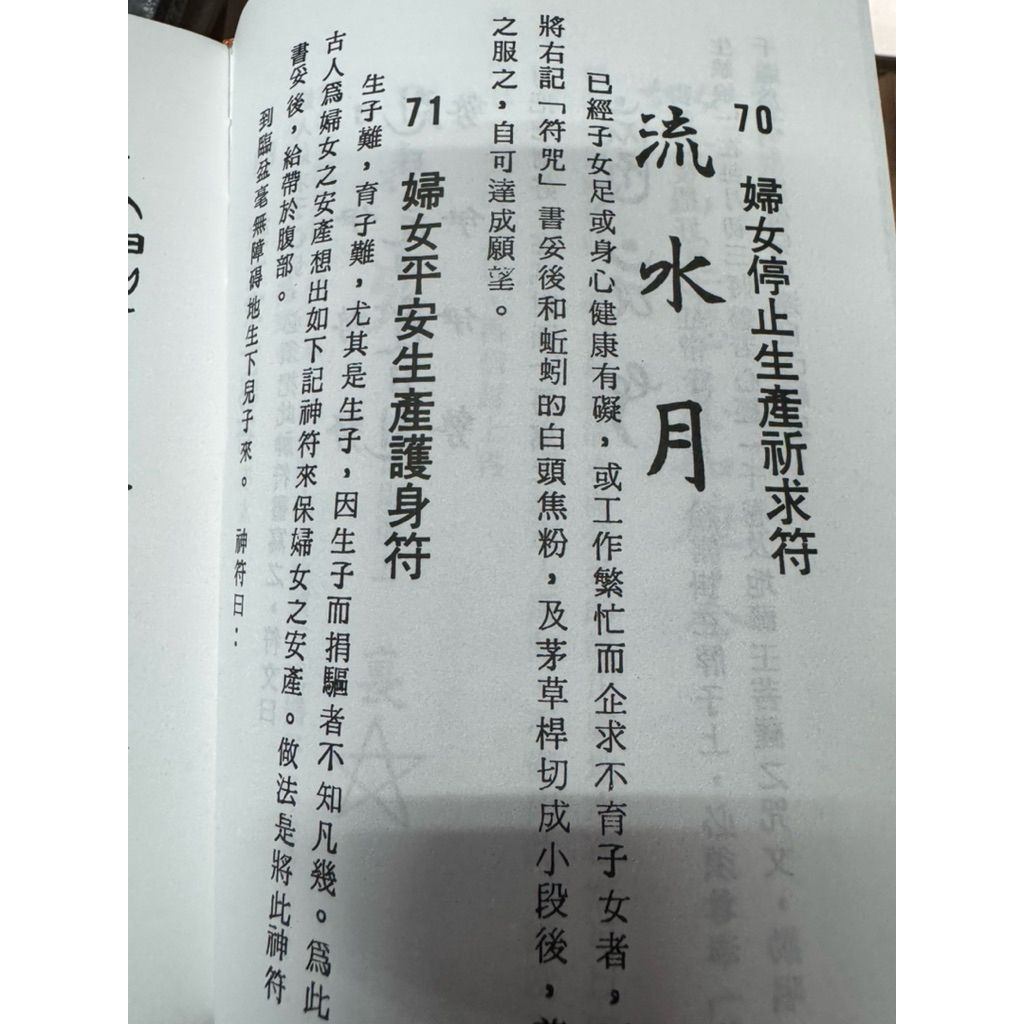 70 婦女停止生產祈求符
流水月
已經子女足或身心健康有礙，或工作繁忙而企求不育子女者，
將右記「符咒」書妥後和蚯蚓的白頭焦粉，及茅草桿切成小段後，
之服之，自可達成願望。
71 婦女平安生產護身符
生子難，育子難，尤其是生子，因生子而捐驅者不知凡幾。爲此
古人爲婦女之安產想出如下記神符來保婦女之安產。做法是將此神符
書妥後，給帶於腹部。
到臨盆毫無障碍地生下兒子來。神符曰：